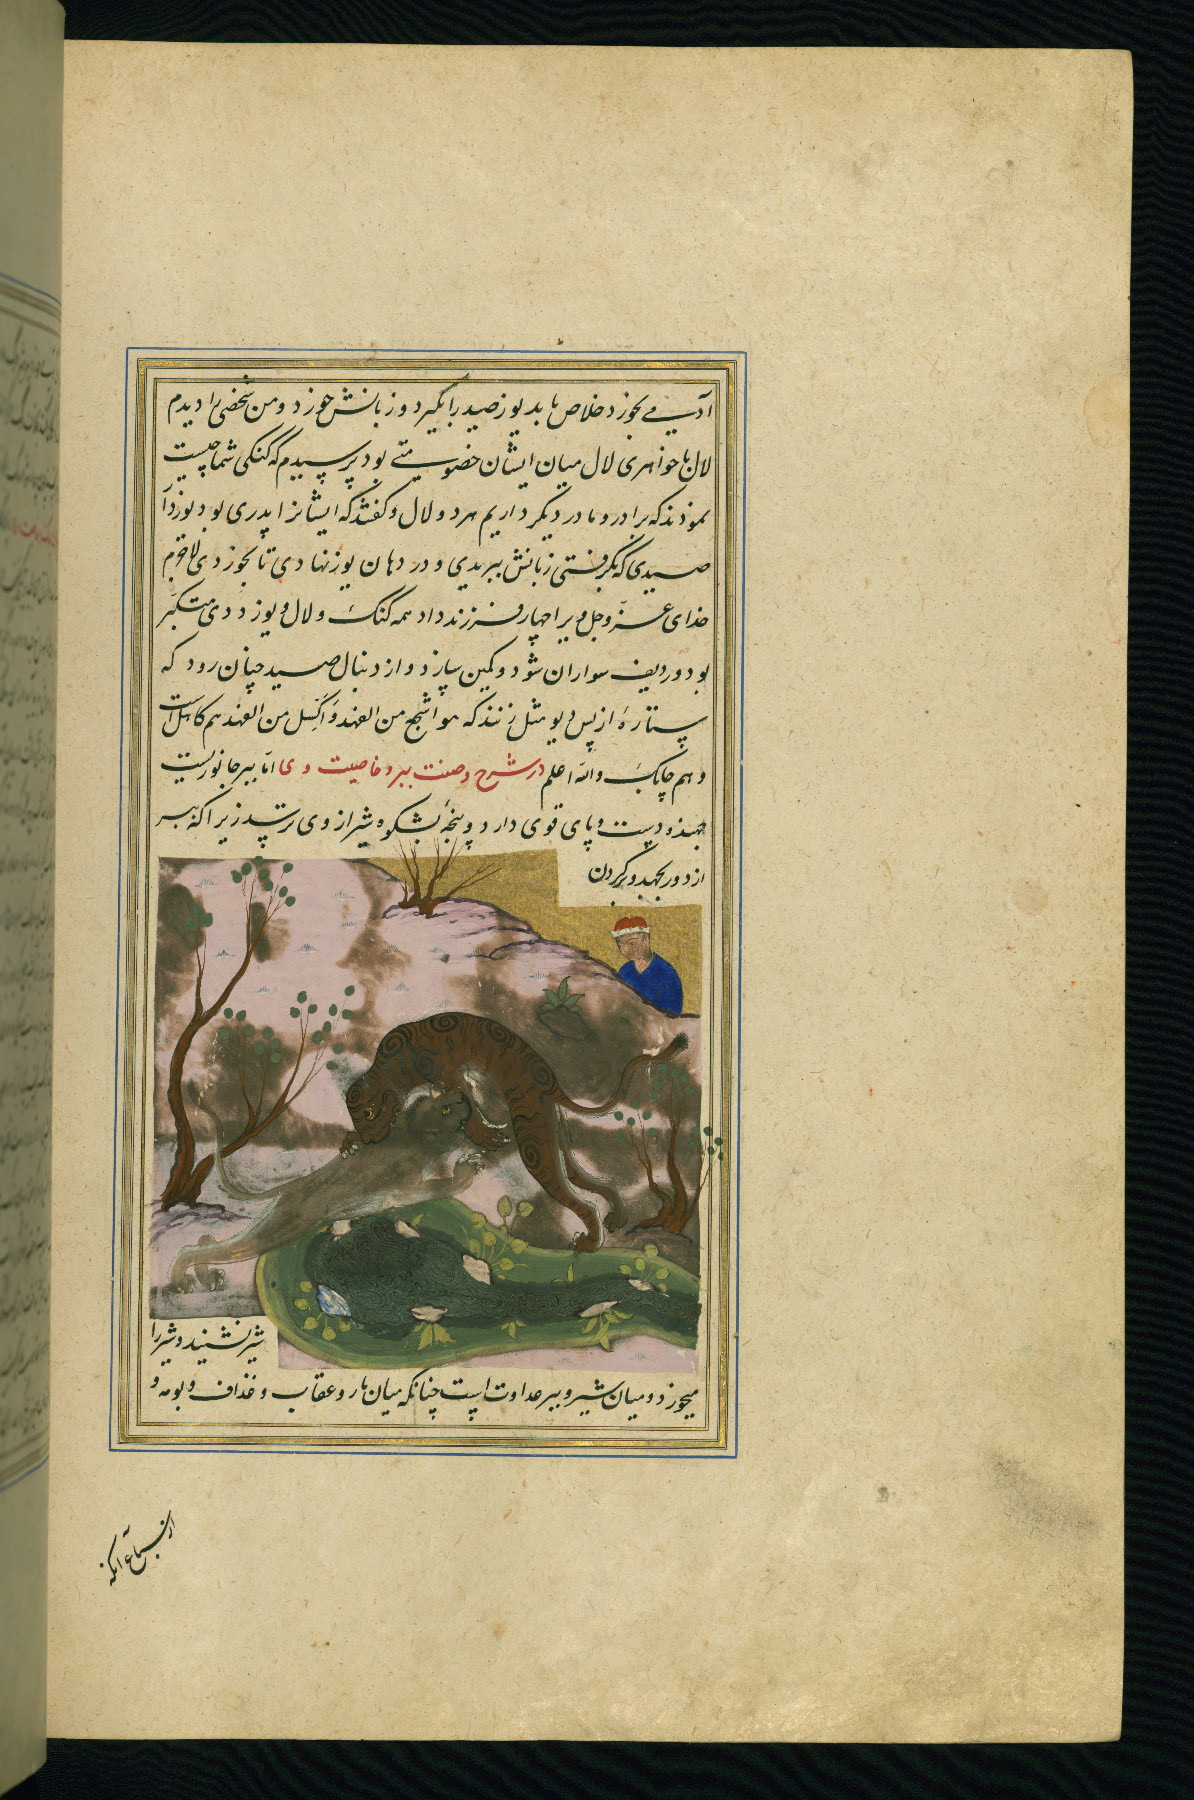 آدمی بخورد خلاص یابد یوز صید را بگیرد و زبانش خورد و من شخصی را دیدم
لال با خواهری لال میان ایشان خصومتی بود پرسیدم که گنگی شما چیست
نمودند که برادر و مادر دیگر داریم هر دو لال و گفتند که ایشانرا پدری بود یوزدار
صیدی که بگرفتی زبانش ببریدی و در دهان یوز نهادی تا بخوردی لاجرم
خدای عزّ و جل ویرا چهار فرزند داد همه گنگ و لال و یوز ددی متکبّر
بود و ردیف سواران شود و کمین سازد و از دنبال صید چنان رود که
ستاره از پس دیو مثل زنند که هو اشجع من الفهد و اکسل من الفهد هم کاهل است
و هم چابک والله اعلم در شرح و صفت ببر و خاصیت وی امّا ببر جانوریست
جهنده و دست و پای قوی دارد و پنجه بشکوه شیر از وی ترسد زیرا که ببر
از دور بجهد و بر گردن
شیر نشیند و شیر را
میخورد و میان شیر و ببر عداوت است چنانکه میان مار و عقاب و غداف و بومه و